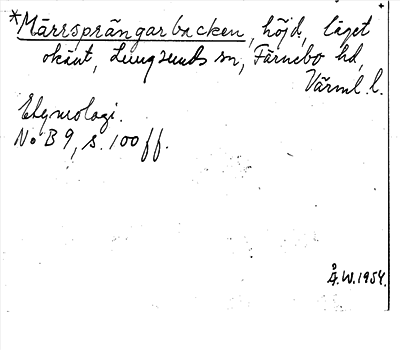 *Märrsprängarbacken, höjd, läget
okänt, Lungsunds sn, Färnebo hd,
Värml. l.
Etymologi.
No B 9, s. 100 ff.
Å.W. 1954.